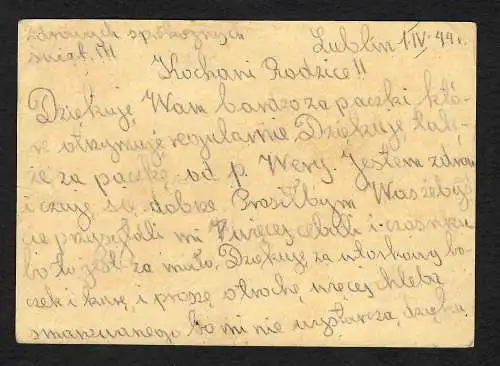 zdrowych spokojnych
świąt !!!
Lublin 1 IV. 44 r.
Kochani Rodzice!!
Dziękuję Wam bardzo za paczki któ-
re otrzymuję regularnie. Dziękuję tak-
że za paczkę od p. Wery. Jestem zdrów
i czuję się dobrze. Prosiłbym Was żebyś
cie przysyłali mi więcej cebuli i czosnku
bo to jest za mało. Dziękuję za bo-
czek i kurę, i proszę o trochę więcej chleba
smarowanego bo mi nie wystarcza, dzięku